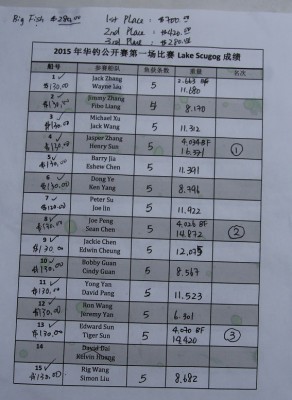 Big Fish $280.00 1st Place : $700.00
2nd Place : $420.00
3rd Place : $280.00
2015 年华钓公开赛第一场比赛 Lake Scugog 成绩
船号 参赛船队 鱼获条数 重量 名次
1 ✓ Jack Zhang 2.663 BF
$130.00 Wayne Liu 5 11.680
2 ✓ Jimmy Zhang
$130.00 Fibo Liang 5 8.170
3 ✓ Michael Xu
$130.00 Jack Wang 5 11.312
4 ✓ Jasper Zhang 4.034 BF
$130.00 Henry Sun 5 16.371 ①
5 ✓ Barry Jia
$130.00 Eshew Chen 5 11.391
6 ✓ Dong Ye
$130.00 Ken Yang 5 8.746
7 ✓ Peter Su
$130.00 Joe lin 5 11.922
8 ✓ Joe Peng 4.026 BF
$130.00 Sean Chen 5 14.872 ②
9 ✓ Jackie Chen
$130.00 Edwin Cheung 5 12.075
10 ✓ Bobby Guan
$130.00 Cindy Guan 5 8.567
11 ✓ Yong Yan
$130.00 David Pang 5 11.523
12 ✓ Ron Wang
$130.00 Jeremy Yan 5 6.301
13 ✓ Edward Sun 4.070 BF
$130.00 Tiger Sun 5 14.420 ③
14 David Dai
Kelvin Huang
15 ✓ Rig Wang
$130.00 Simon Liu 5 8.682